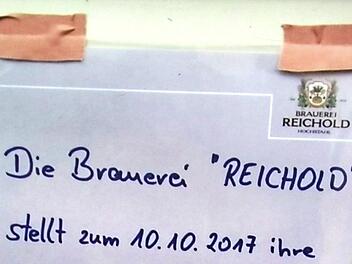 BRAUEREI
REICHOLD
HOCHSTAHL
Die Brauerei "REICHOLD"
stellt zum 10.10.2017 ihre